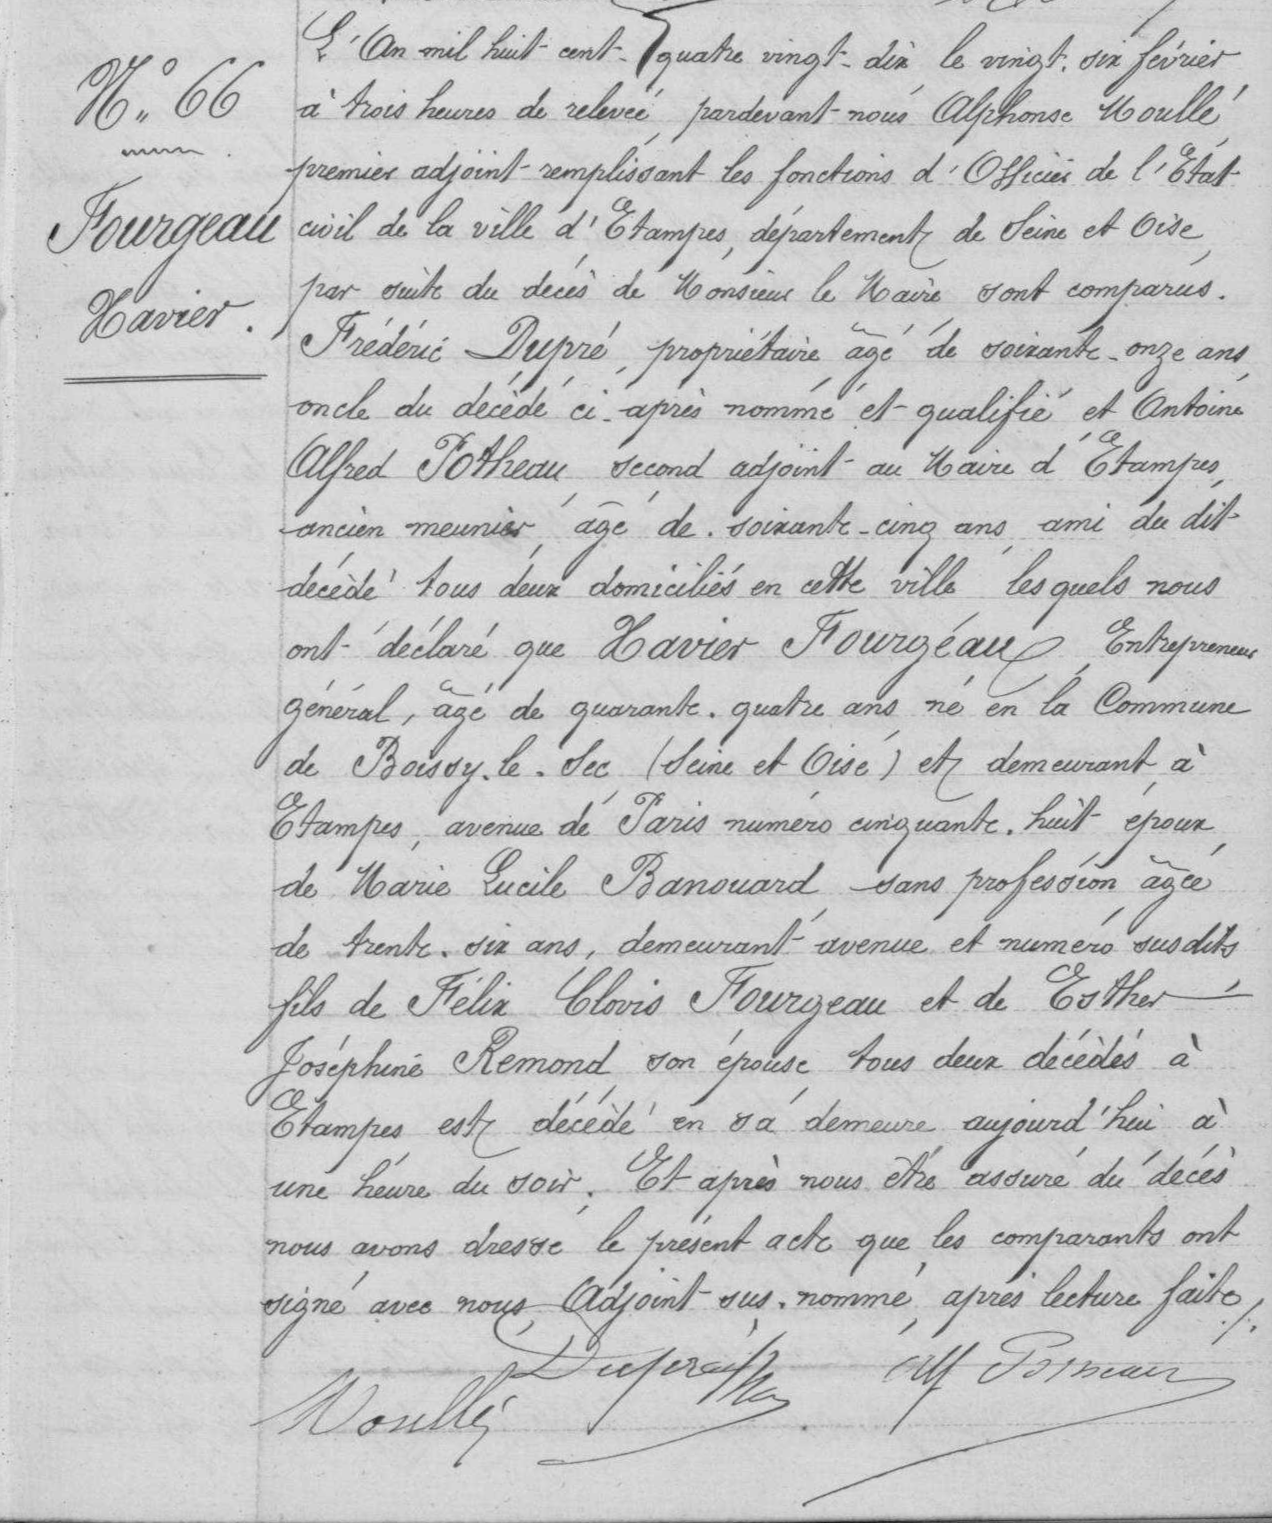 N° 66
Fourgeau
Xavier.
L'An mil huit cent quatre vingt-dix le vingt-six février
à trois heures de relevée, pardevant nous Alphonse Moullé,
premier adjoint remplissant les fonctions d'Officier de l'Etat
civil de la ville d'Etampes, département de Seine et Oise,
par suite du décès de Monsieur le Maire sont comparus.
Frédéric Dupré, propriétaire âgé de soixante-onze ans,
oncle du décédé ci-après nommé et qualifié et Antoine
Alfred Potheau, second adjoint au Maire d'Etampes,
ancien meunier, âgé de soixante-cinq ans, ami du dit
décédé tous deux domiciliés en cette ville lesquels nous
ont déclaré que Xavier Fourgeau, Entrepreneur
général, âgé de quarante-quatre ans né en la Commune
de Boissy-le-Sec (Seine et Oise) et demeurant à
Etampes, avenue de Paris numéro cinquante-huit époux
de Marie Lucile Banouard, sans profession âgée
de trente-six ans, demeurant avenue et numéro susdits
fils de Félix Clovis Fourgeau et de Esther
Joséphine Remond, son épouse tous deux décédés à
Etampes est décédé en sa demeure aujourd'hui à
une heure du soir. Et après nous être assuré du décès
nous avons dressé le présent acte que les comparants ont
signé avec nous, Adjoint sus-nommé, après lecture faite/.
Dupré Alf Potheau
Moullé